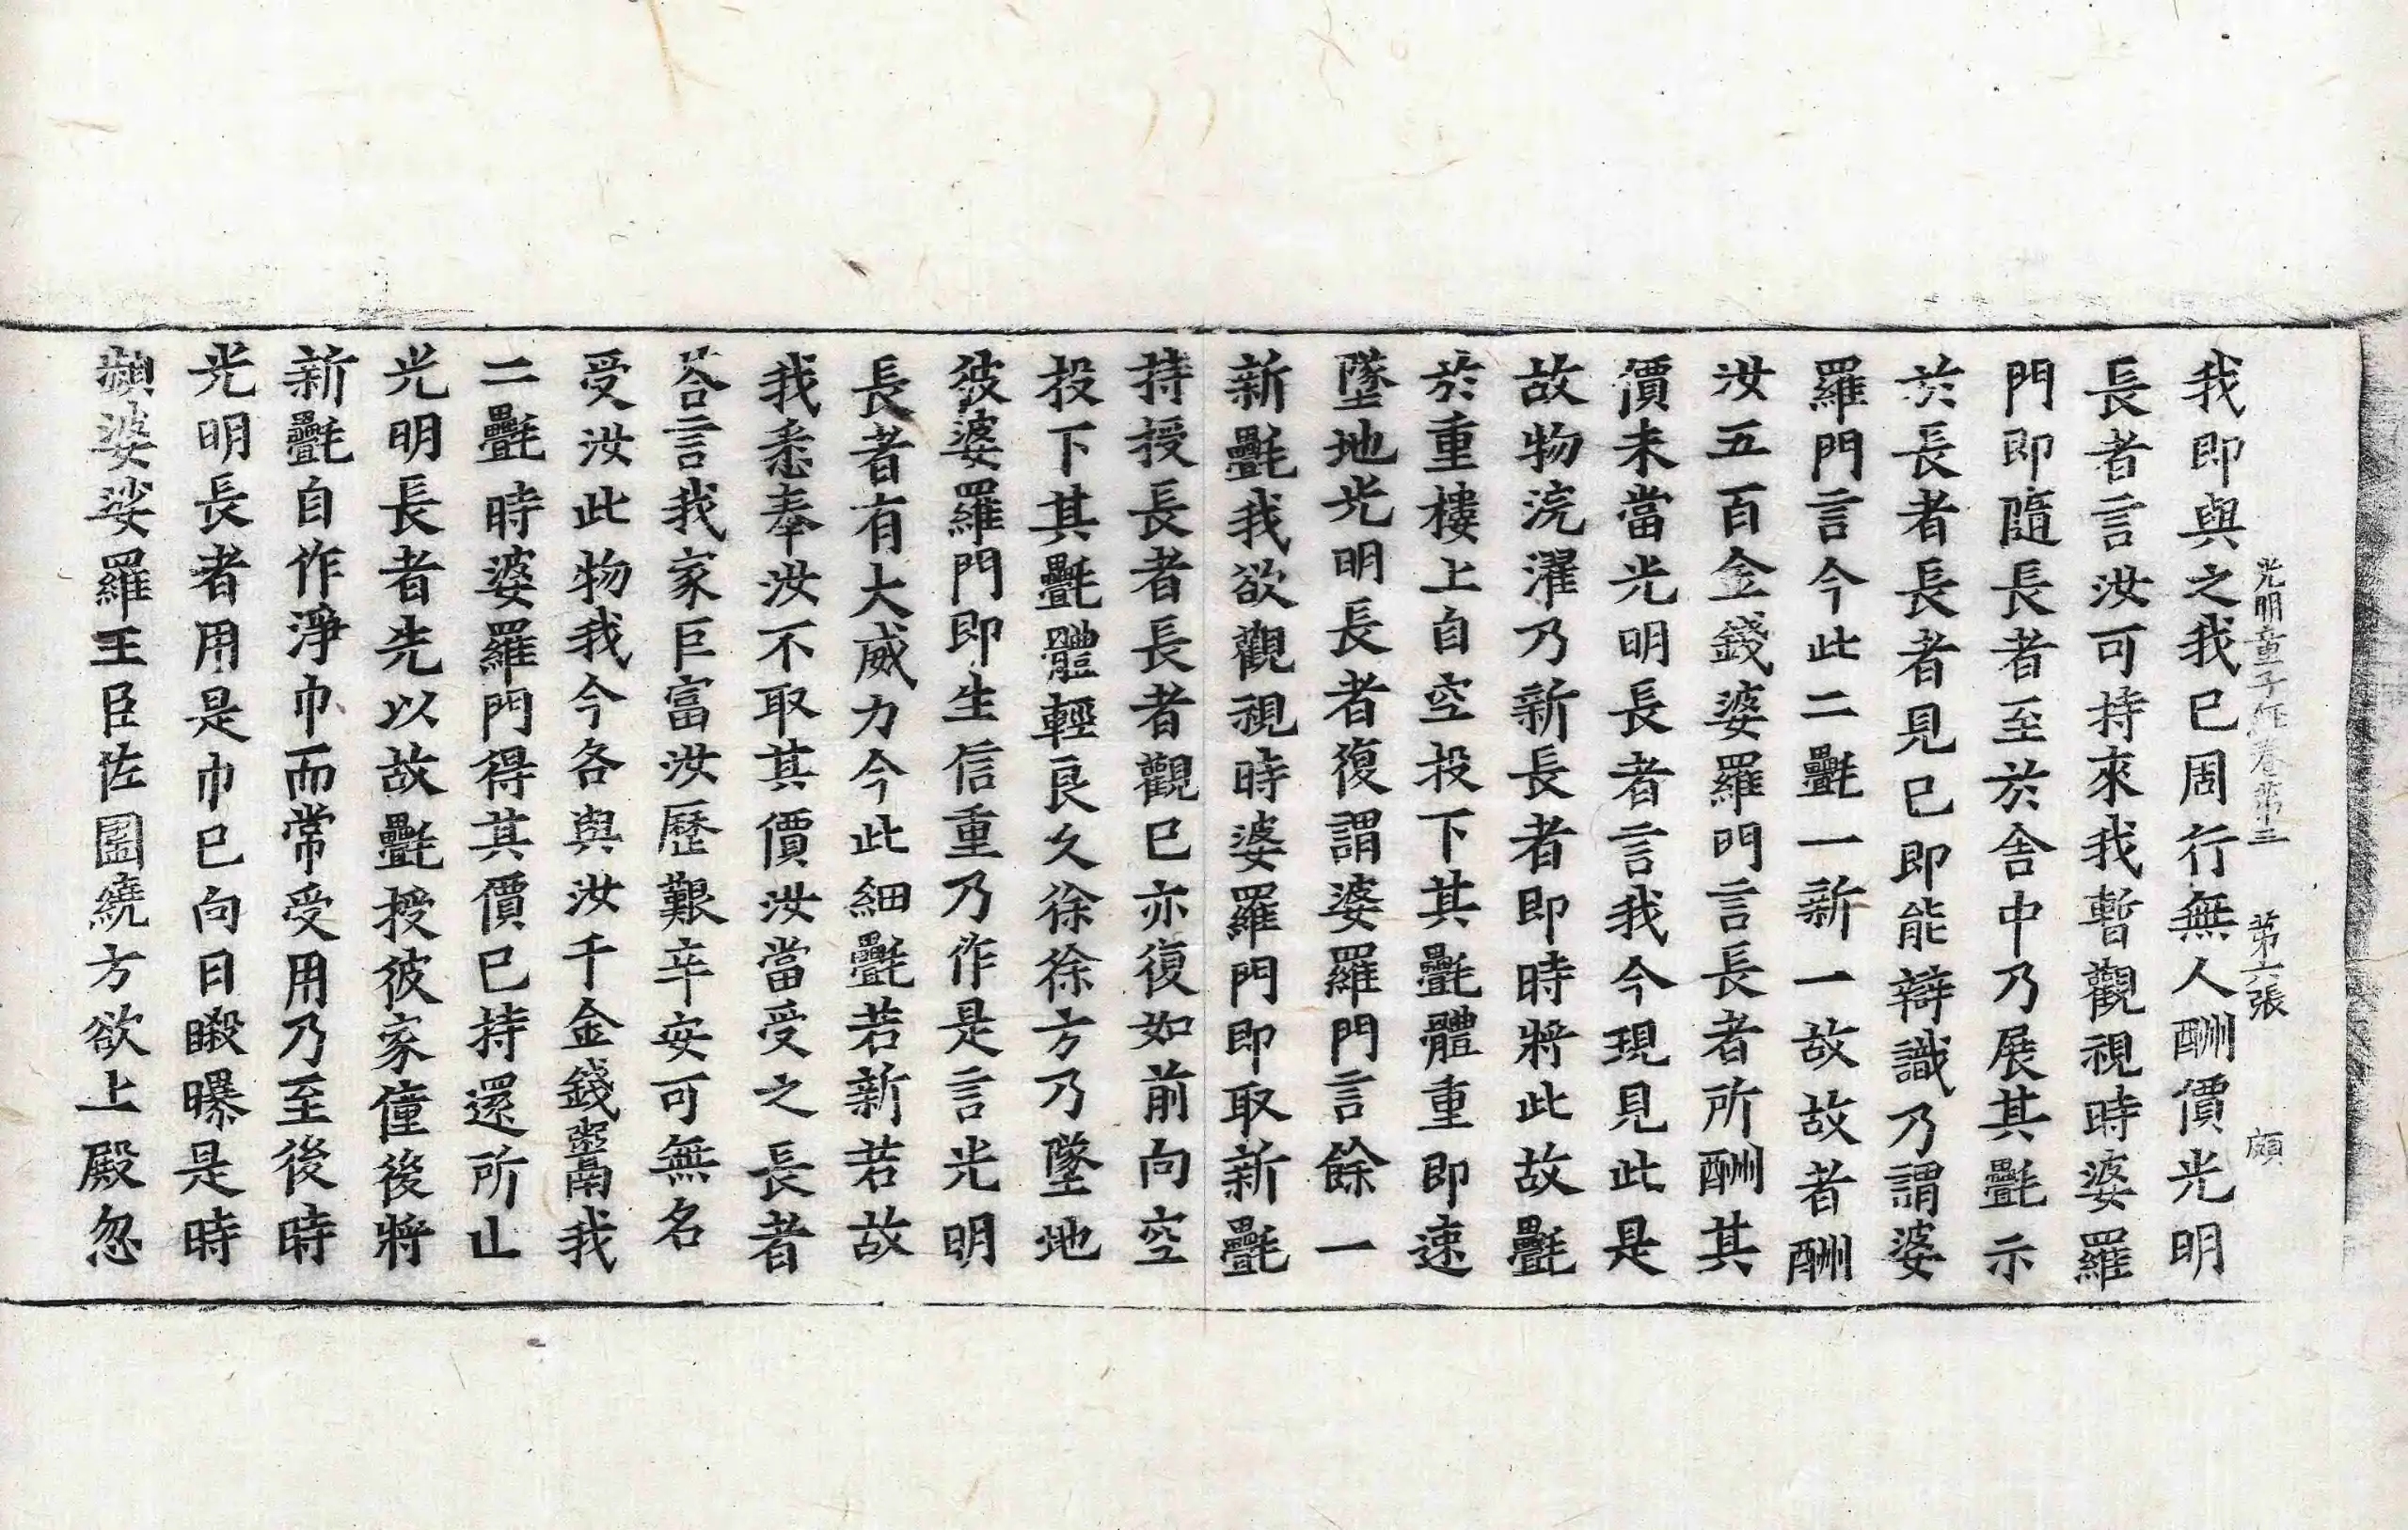 光明童子經卷第三 第六張 頗
我即與之我已周行無人酬價光明
長者言汝可持來我暫觀視時婆羅
門即隨長者至於舎中乃展其㲲示
於長者長者見已即能辯識乃謂婆
羅門言今此二㲲一新一故故者酬
汝五百金錢婆羅門言長者所酬其
價未當光明長者言我今現見此是
故物浣濯乃新長者即時將此故㲲
於重樓上自空投下其㲲體重即速
墜地光明長者復謂婆羅門言餘一
新㲲我欲觀視時婆羅門即取新㲲
持授長者長者觀已亦復如前向空
投下其㲲體輕良久徐徐方乃墜地
彼婆羅門即生信重乃作是言光明
長者有大威力今此細㲲若新若故
我悉奉汝不取其價汝當受之長者
荅言我家巨富汝歷艱辛安可無名
受汝此物我今各與汝千金錢鬻我
二㲲時婆羅門得其價已持還所止
光明長者先以故㲲授彼家僮後將
新㲲自作淨巾而常受用乃至後時
光明長者用是巾已向日㬠曝是時
頻婆娑羅王臣佐圍繞方欲上殿忽